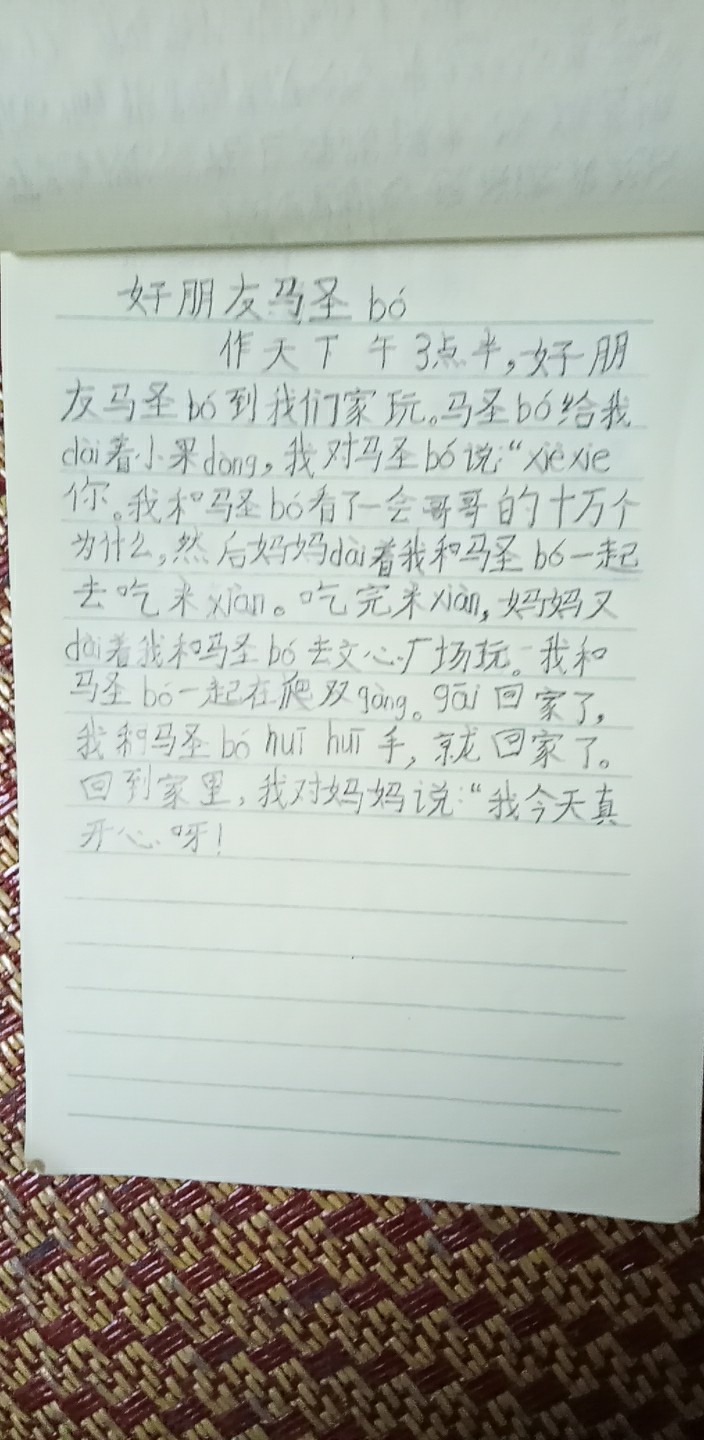 好朋友马圣bó
作天下午3点半,好朋
友马圣bó到我们家玩。马圣bó给我
dài着小果dòng,我对马圣bó说:“xièxie
你。我和马圣bó看了一会哥哥的十万个
为什么,然后妈妈dài着我和马圣bó一起
去吃米xiàn。吃完米xiàn,妈妈又
dài着我和马圣bó去文心广场玩。我和
马圣bó一起在爬双gàng。gāi回家了,
我和马圣bó huī huī手,就回家了。
回到家里,我对妈妈说:“我今天真
开心呀!